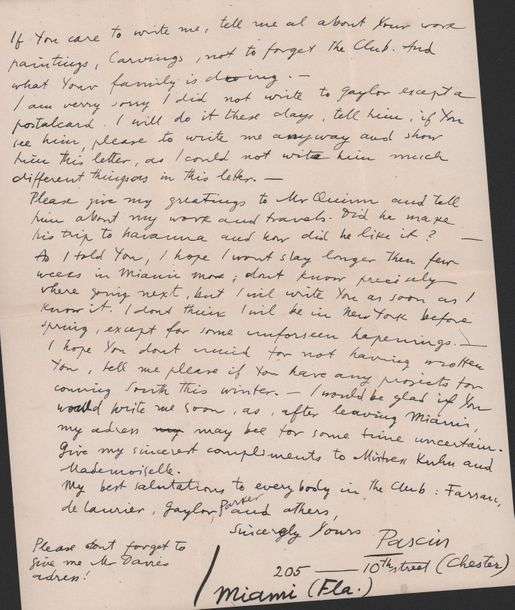 If You care to write me, tell me al about Your work
paintings, Carvings, not to forget the Club. And
what Your family is doing. —
I am verry sorry I did not write to Gaylor except a
postalcard. I will do it these days, tell him, if You
see him, please to write me anyway and show
him this letter, as I could not write him much
different things in this letter. —
Please give my greetings to Mr Quinn and tell
him about my work and travels. Did he make
his trip to havanna and how did he like it? —
As I told You, I hope I wont stay longer then few
weeks in Miami more, dont know precisely
where going next, but I wil write You as soon as I
know it. I dont think I wil be in New York before
spring, except for some unforseen hapenings. —
I hope You dont mind for not having wrotten
You, tell me please if You have any projects for
coming South this winter. — I would be glad if You
would write me soon, as, after leaving Miami,
my adress may bee for some time uncertain.
Give my sincerest compliments to Mistress Kuhn and
Mademoiselle.
My best salutations to everybody in the Club: Farran,
de Laurier, Gaylor Parker and others,
Sincerly Yours
Pascin
Please dont forget to
give me Mr Davies
adress!
205 — 10th street (Chester)
Miami (Fla.)